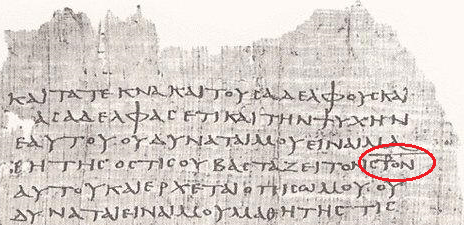 ΚΑΙΤΑΤΕΚΝΑΚΑΙΤΟΥϹΑΔΕΛΦΟΥϹΚΑΙ
ΑϹΑΔΕΛΦΑϹΕΤΙΚΑΙΤΗΝΨΥΧΗΝ
ΕΑΥΤΟΥΟΥΔΥΝΑΤΑΙΜΟΥΕΙΝΑΙΜΑ
ΘΗΤΗϹΟϹΤΙϹΟΥΒΑϹΤΑΖΕΙΤΟΝϹ⳨ΟΝ
ΑΥΤΟΥΚΑΙΕΡΧΕΤΑΙΟΠΙϹΩΜΟΥΟΥ
ΔΥΝΑΤΑΙΕΙΝΑΙΜΟΥΜΑΘΗΤΗϹΤΙϹ